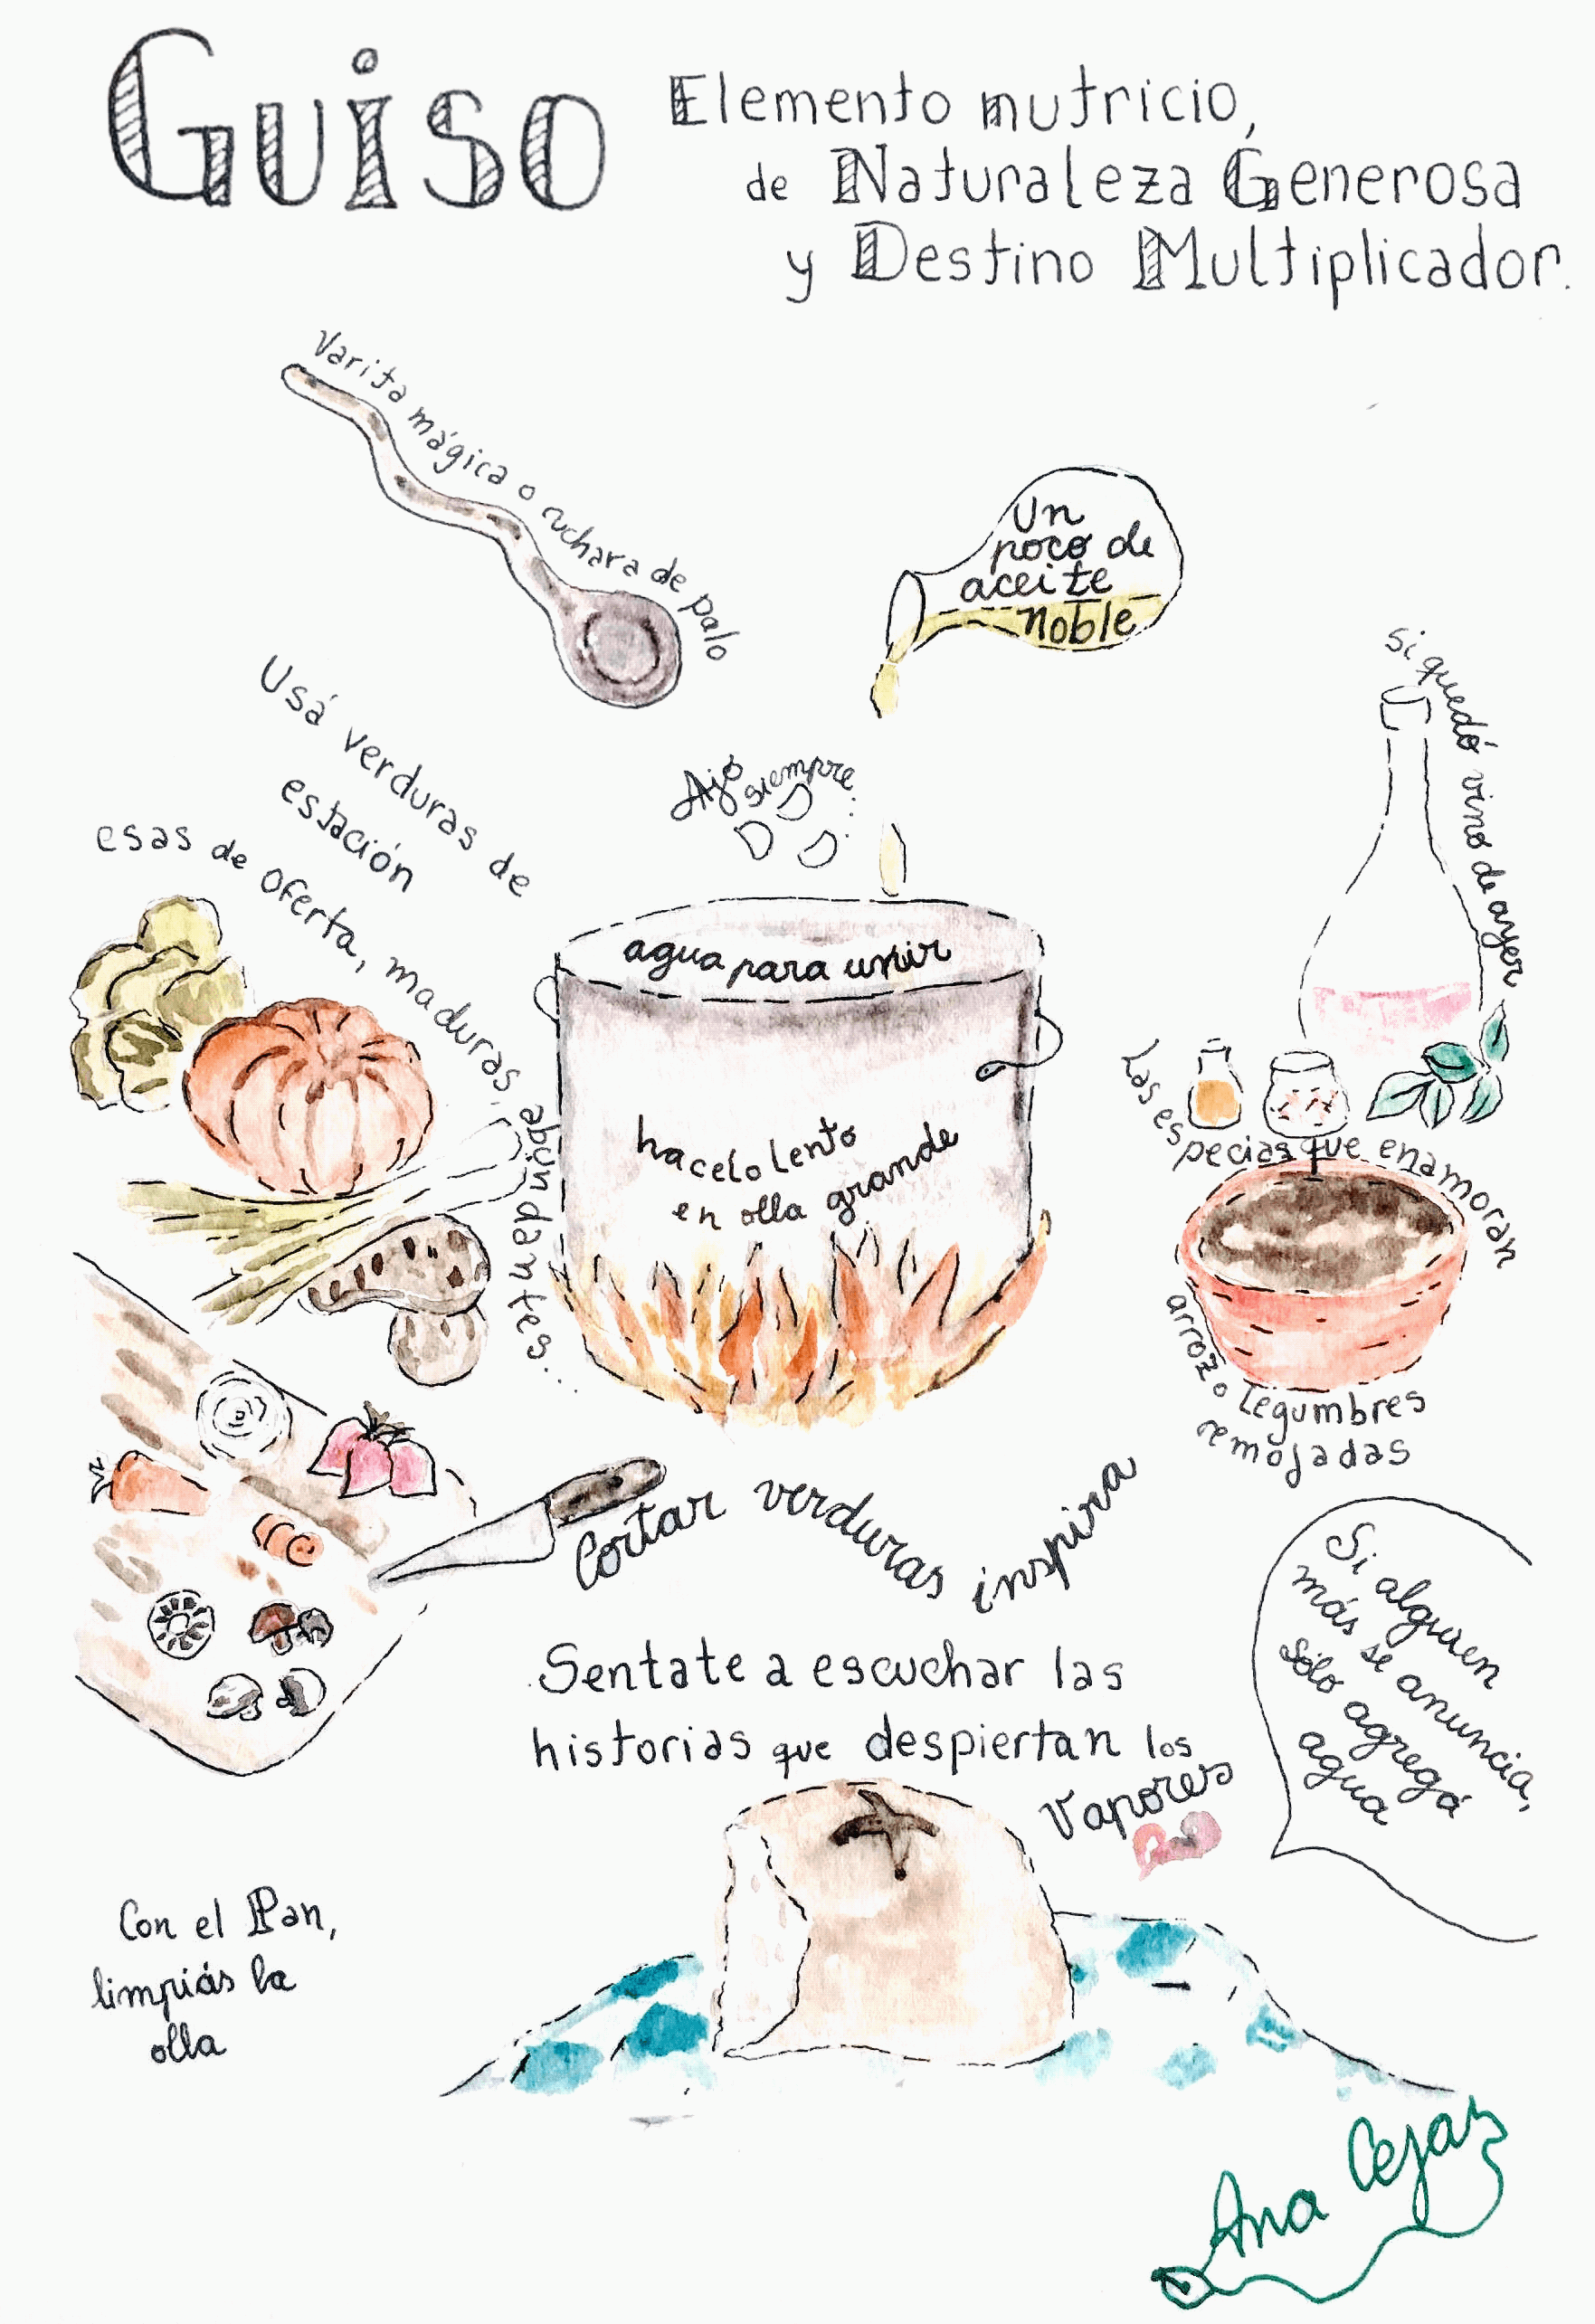 Guiso
Elemento nutricio,
de Naturaleza Generosa
y Destino Multiplicador.
Varita mágica o cuchara de palo
Un
poco de
aceite
noble
Ajo siempre...
Usá verduras de
estación
esas de oferta, maduras, abundantes...
Si quedó vino de ayer
agua para unir
hacelo lento
en olla grande
Las especias que enamoran
arroz o legumbres
remojadas
Cortar verduras inspira
Sentate a escuchar las
historias que despiertan los
vapores
Si alguien
más se anuncia,
sólo agregá
agua
Con el Pan,
limpiás la
olla
Ana Cejas